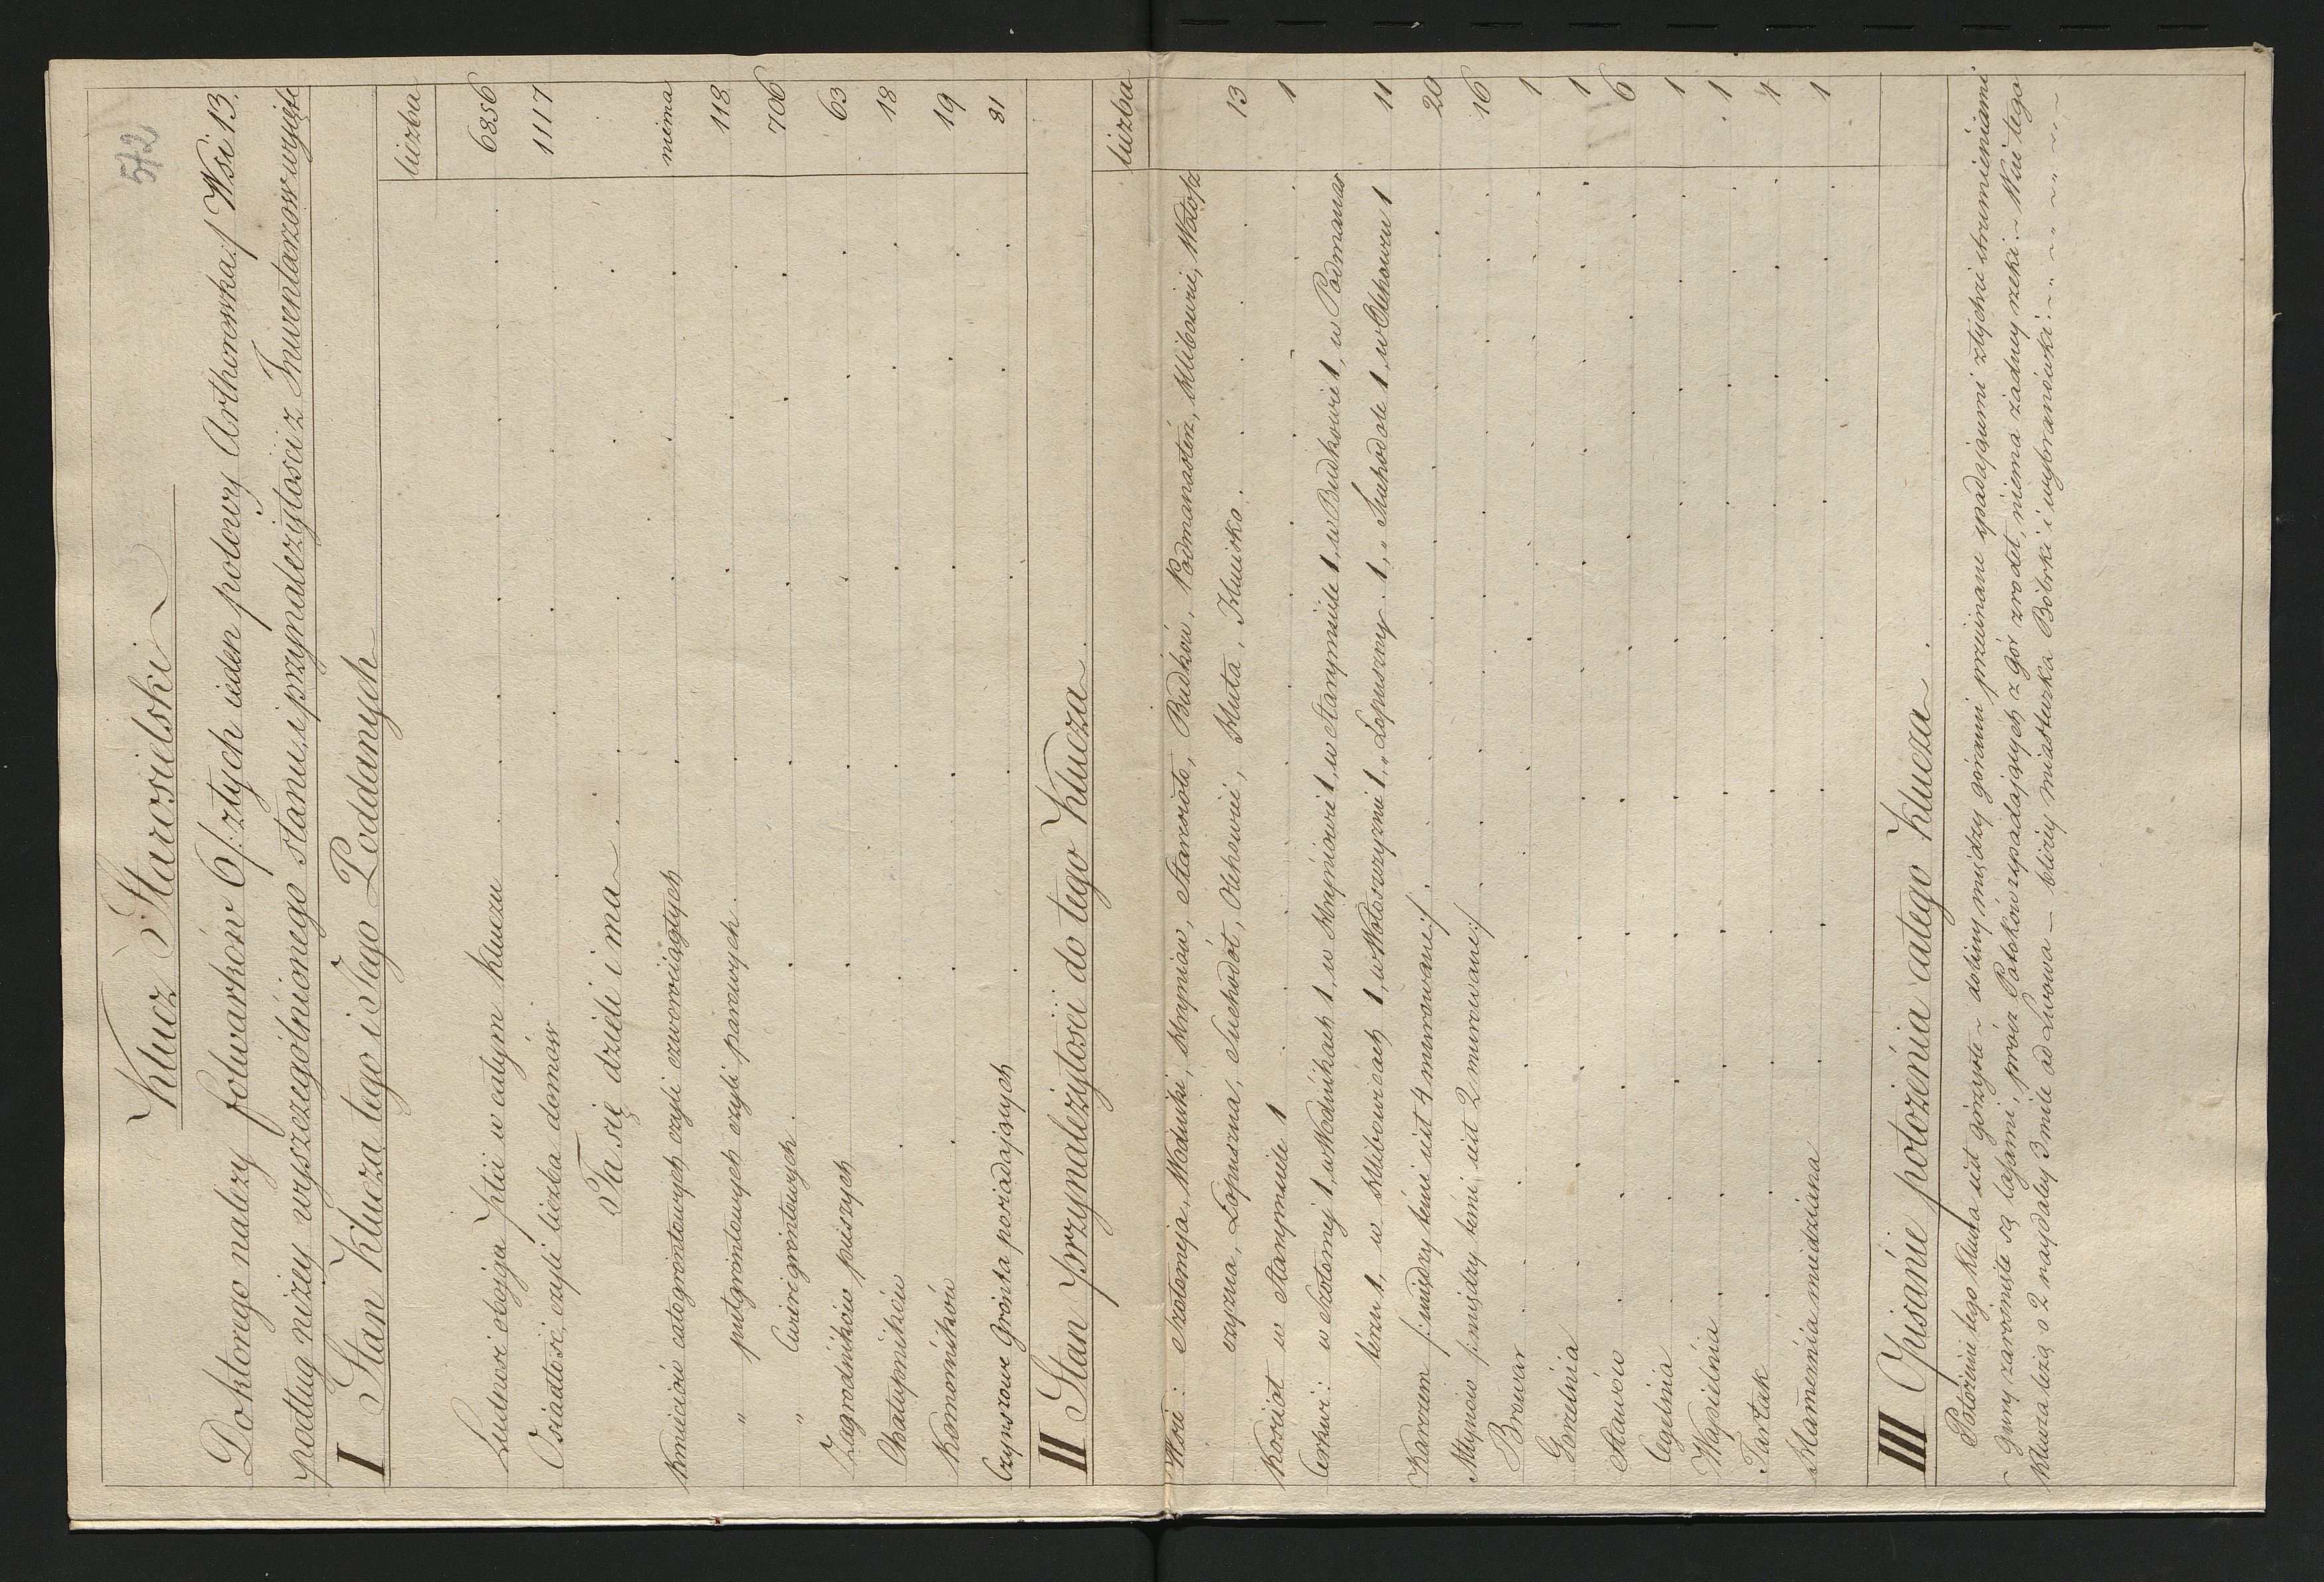 572
Klucz Starosielski
Doktorego nalezy folwarków 6/: ztych ieden polowy Arthorowka:/ Wsi 13.
podług niżey wyszczególnionego stanu i przynależytości z Inwentarzow wyięte
I Stan Klucza tego i Jego Poddanych
liczba
Ludnosc osiąga Płci w całym kluczu 6356
Osiadłosci, czyli liczba domów 1117
Ta się dzieli i ma
Kmieciow całogrontowych czyli czworociągłych niema
" pułgrontowych czyli parowych 118
" Cwiercgrontowych 706
Zagrodników pieszych 63
Chałupników 18
Komorników 19
Czynszowe Gronta posiadaiących 31
II Stan przynależytości do tego Klucza
liczba
Wsie: Szołomyja, Wodniki, Hryniow, Starosioło, Budków, Podmanasterz, Hlibowice, Wołosz
czyzna, Łopuszna, Suchodoł, Olchowiec, Huta, Hucisko 13
Kosciół w Starymsiele 1 1
Cerkwi: w Szołomyi 1, w Wodnikach 1, w Hryniowi 1, w Starymsiele 1, w Budkowie 1, w Podmanas
terzu 1, w Hlibowicach 1, w Wołoszczyznie 1, " Łopuszny 1, " Suchodole 1, w Olchowcu 1 11
Karczem /: między temi iest 4 murowane:/ 20
Młynow /: między temi iest 2 murowane:/ 16
Browar 1
Gorzelnia 1
Stawów 6
Cegelnia 1
Wapielnia 1
Tartak 1
Kamennia miedziana 1
III Opisanie położenia całego Klucza
Położenie tego klucza iest górzyste ~ doliny między górami przeinane spadaiącemi ztychże strumieniami
~ Góry zarosniete są lasami, prócz Potoków spadaiących z gór zrodeł, niema żadney rzeki. ~ Wsie tego
Klucza leżą o 2 naydaley 3 mile od Lwowa — bliży miasteczka Bóbrki i wybranówki.